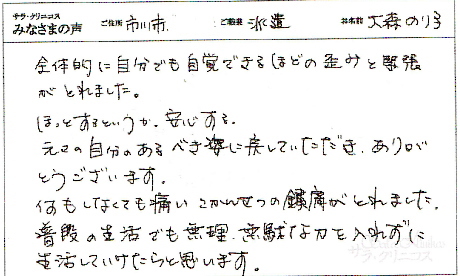 サラ・クリニコス
みなさまの声 ご住所 市川市 ご職業 派遣 お名前 大森のり子
全体的に自分でも自覚できるほどの歪みと緊張
がとれました。
ほっとするというか、安心する。
元々の自分のあるべき姿に戻していただき、ありが
とうございます。
何もしなくても痛いこかんせつの鎮痛がとれました。
普段の生活でも無理、無駄な力を入れずに
生活していけたらと思います。
サラ・クリニコス